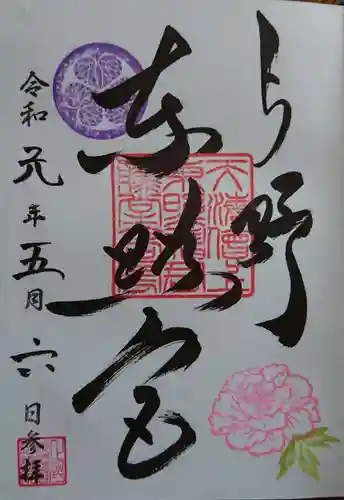 上野
東照宮
令和元年五月六日参拝